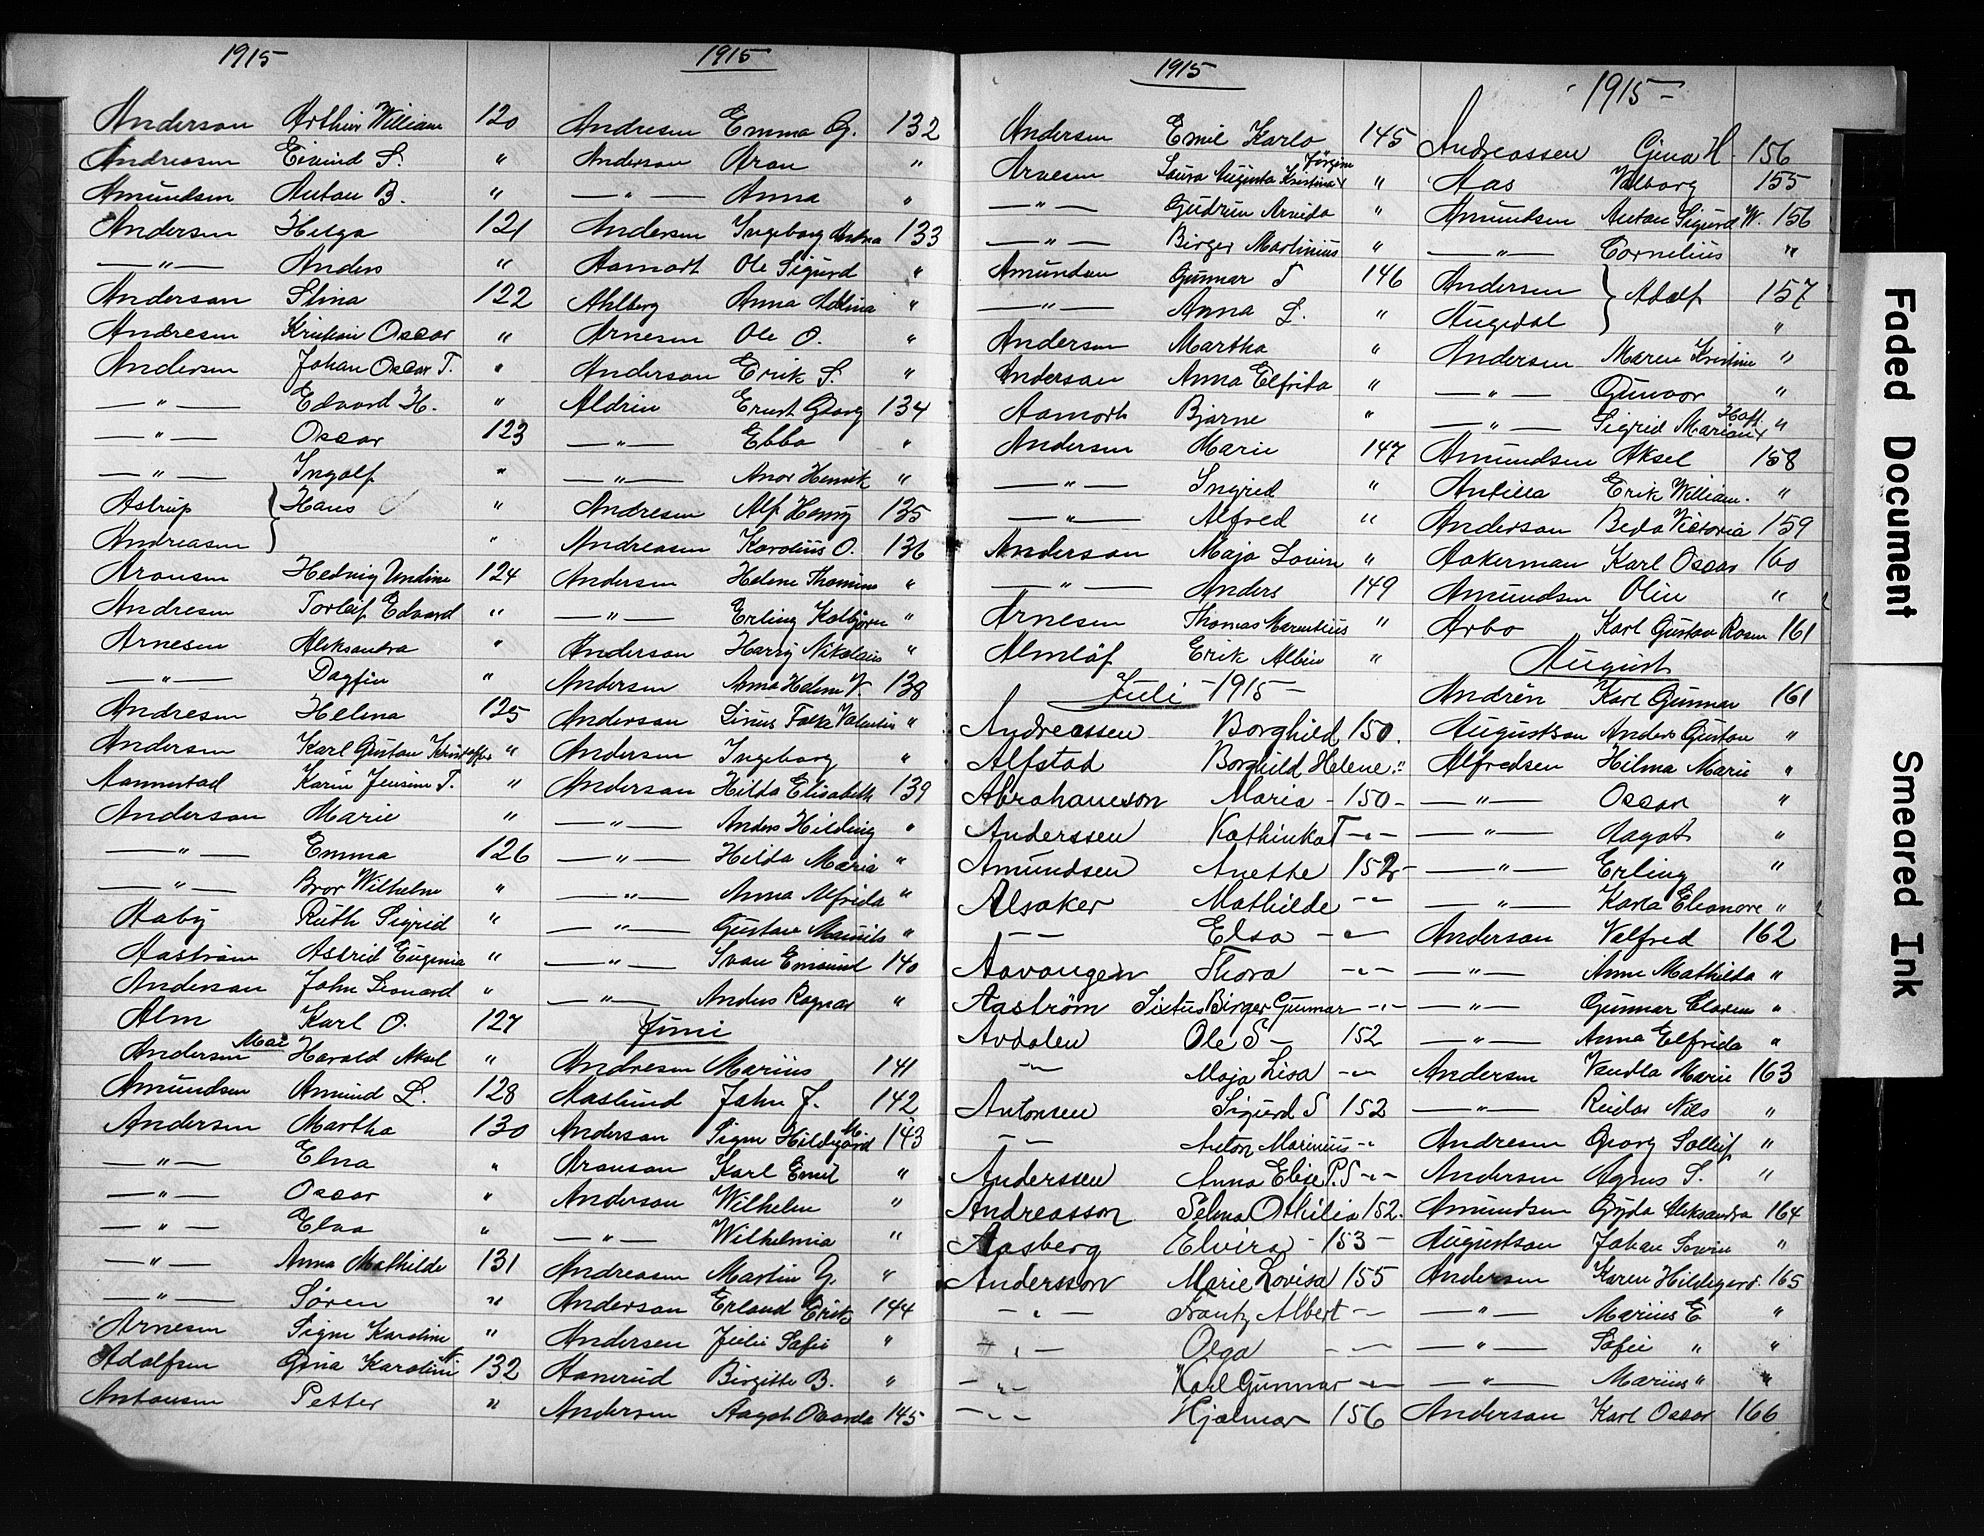 1915
Anderson Arthur William 120
Andreasen Eivind S. "
Amundsen Anton B. "
Andersen Helga 121
— " — Anders "
Anderson Stina 122
Andresen Kristian Oscar "
Andersen Johan Oscar T. "
— " — Edvard H. "
— " — Oscar 123
— " — Ingolf "
Astrup } Hans "
Andreasen } "
Aronsen Hedvig Undine 124
Andresen Torleif Edvard "
Arnesen Aleksandra "
— " — Dagfin "
Andresen Helena 125
Andersen Karl Gustav Kristoffer "
Aamestad Karin Jensine T. "
Anderson Marie "
— " — Emma 126
— " — Bror Wilhelm "
Aaby Ruth Sigrid "
Aaström Astrid Eugenia "
Anderson John Leonard "
Alm Karl O. 127
Mai
Andersen Harald Aksel "
Amundsen Amund L. 128
Andersen Martha 130
— " — Elna "
— " — Oscar "
— " — Elna "
— " — Anna Mathilde 131
— " — Sören "
Arnesen Signe Karoline "
Adolfsen Gina Karoline 132
Antonsen Petter "
1915
Andresen Emma G. 132
Anderson Aron "
— " — Anna "
Andersen Ingeborg 133
Aamodt Ole Sigurd "
Ahlberg Anna "
Arnesen Ole O. "
Anderson Erik S. "
Aldrin Ernst Georg 134
— " — Ebba "
— " — Henrik "
Andresen Alf Henry 135
Andreasen Karolius O. 136
Andersen Helene "
— " — Erling Kolbjörn "
Anderson Harry Nikolaus "
Andersen Anna Helene V. 138
Anderson Linus Valentin "
Andersen Ingeborg "
Anderson Hilda Elisabeth 139
— " — Anders Hilding "
— " — Hilda Maria "
— " — Anna Alfrida "
— " — Gustav Mauritz "
— " — Svan Emanuel 140
— " — Anders Ragnar "
Juni
Andresen Marius 141
Aaslund John J. 142
Anderson Signe Hildegard M. 143
Aronson Karl Emil "
Anderson Wilhelm "
— " — Wilhelmia "
Andreasen Martin "
Anderson Erland Erik 144
Andersen Julie Sofie "
Aanerud Birgitte B. "
Andersen Aagot Ovarda 145
1915
Andersen Emil Karlo 145
Arnesen Laura Augusta Kristina Jörgine "
— " — Gudrun Arnida "
— " — Birger Martinius "
Amundsen Gunnar S 146
— " — Anna L. "
Anderson Martha "
Anderson Anna Elfrida "
Aamodt Bjarne "
Andersen Marie 147
— " — Ingrid "
— " — Alfred "
Anderson Maja Lovise "
— " — Anders 149
Arnesen Thomas "
Almlöf Erik Albin "
Juli - 1915 -
Andreassen Borghild 150.
Alfstad Borghild Helene "
Abrahamson Maria - 150 -
Anderssen Kathinka T - " -
Amundsen Anette 152 -
Alsaker Mathilde - " -
— " — Elsa - " -
Aavangen Thora - " -
Aaström Sixtus Birger Gunnar - " -
Avdalen Ole S - 152
— " — Maja Lisa - " -
Antonsen Sigurd S 152
— " — Anton Marinius - " -
Anderssen Anna Elise P. S - " -
Andreasson Selma Othilia 152.
Aasberg Elvira - 153 -
Andersson Marie Lovisa 155
— " — Frantz Albert - " -
— " — Olga - " -
— " — Karl Gunnar - " -
— " — Hjalmar 156
1915 -
Andreassen Gina H - 156
Aas Valborg 155
Amundsen Anton Sigurd W. 156
— " — Cornelius "
Andersen } Adolf 157
Augedal } "
Andersen Maren Kristine "
— " — Gunvor "
— " — Sigrid Marian Hoff "
Amundsen Aksel 158
Antilla Erik William. "
Anderson Beda Victoria 159
Aakerman Karl Oscar 160
Amundsen Olin "
Arbo Karl Gustav 161
August
Andrén Karl Gunnar 161
Augustson Anders Gustav "
Alfredsen Hilma Marie "
— " — Oscar "
— " — Aagot "
— " — Erling "
— " — Karla Elionore "
Anderson Valfred 162
— " — Anna Mathilda "
— " — Gunnar "
— " — Anna Elfrida "
Andersen Vandla Marie 163
— " — Reidar Nils "
Andresen Georg "
Andersen Agnes S. "
Amundsen Gyda Aleksandra 164
Augustson Johan "
Andersen Karen Hildegard. 165
— " — Marius E "
— " — Sofie " "
— " — Marius " "
Anderson Karl Oscar 166
Faded Document
Smeared Ink